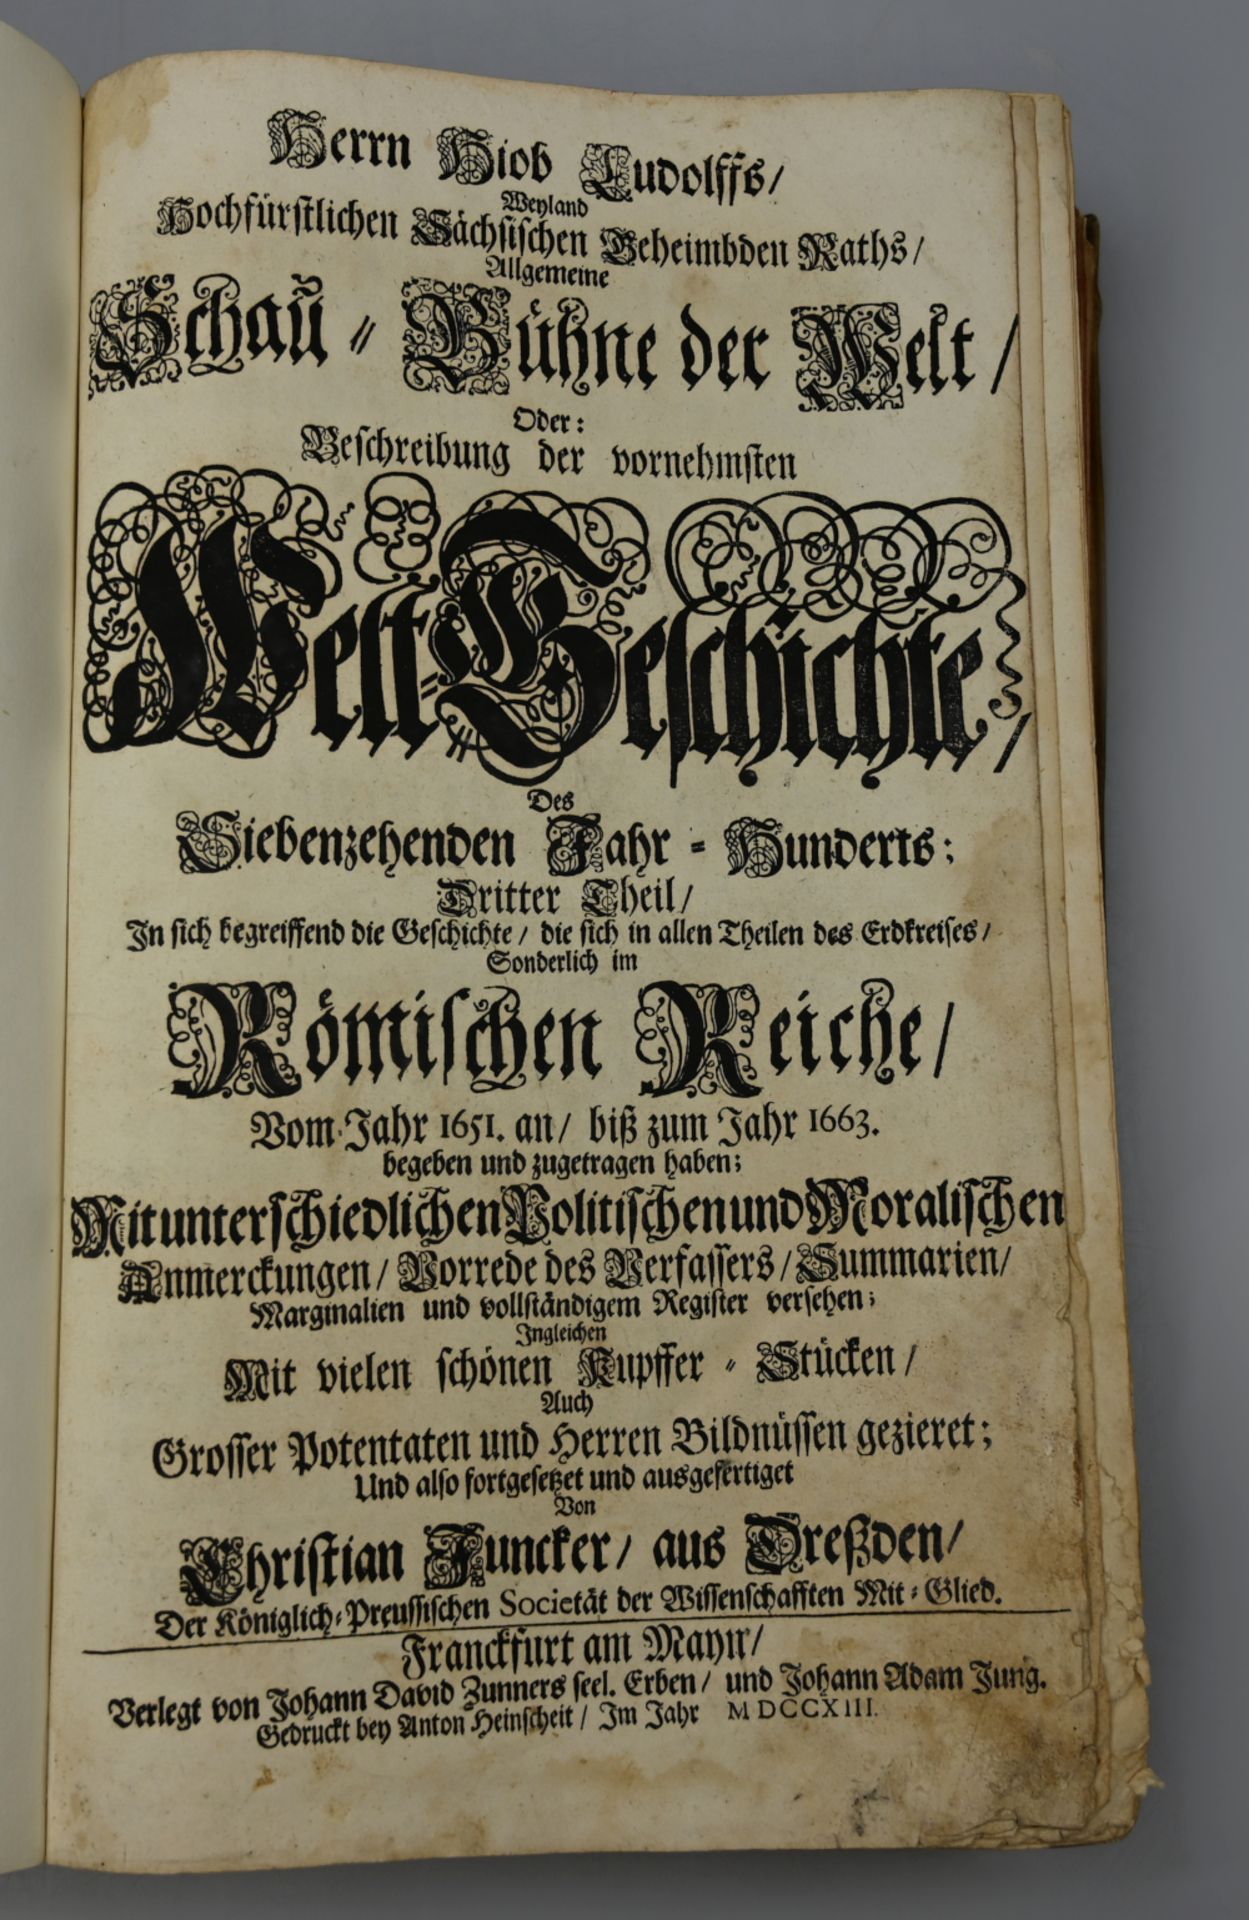 Herrn Hiob Ludolffs/
Weyland
Hochfürstlichen Sächsischen Geheimbden Raths/
Allgemeine
Schau-Bühne der Welt/
Oder:
Beschreibung der vornehmsten
Welt-Geschichte/
Des
Siebenzehenden Jahr-Hunderts;
Dritter Theil/
In sich begreiffend die Geschichte/ die sich in allen Theilen des Erdkreises/
Sonderlich im
Römischen Reiche/
Vom Jahr 1651. an/ biß zum Jahr 1663.
begeben und zugetragen haben;
Mit unterschiedlichen Politischen und Moralischen
Anmerckungen/ Vorrede des Verfassers/ Summarien/
Marginalien und vollständigem Register versehen;
Ingleichen
Mit vielen schönen Kupffer-Stücken/
Auch
Grosser Potentaten und Herren Bildnüssen gezieret;
Und also fortgesetzet und ausgefertiget
Von
Christian Juncker/ aus Dreßden/
Der Königlich-Preussischen Societät der Wissenschafften Mit-Glied.
Franckfurt am Mayn/
Verlegt von Johann David Zunners seel. Erben/ und Johann Adam Jung.
Gedruckt bey Anton Heinscheit/ Im Jahr MDCCXIII.